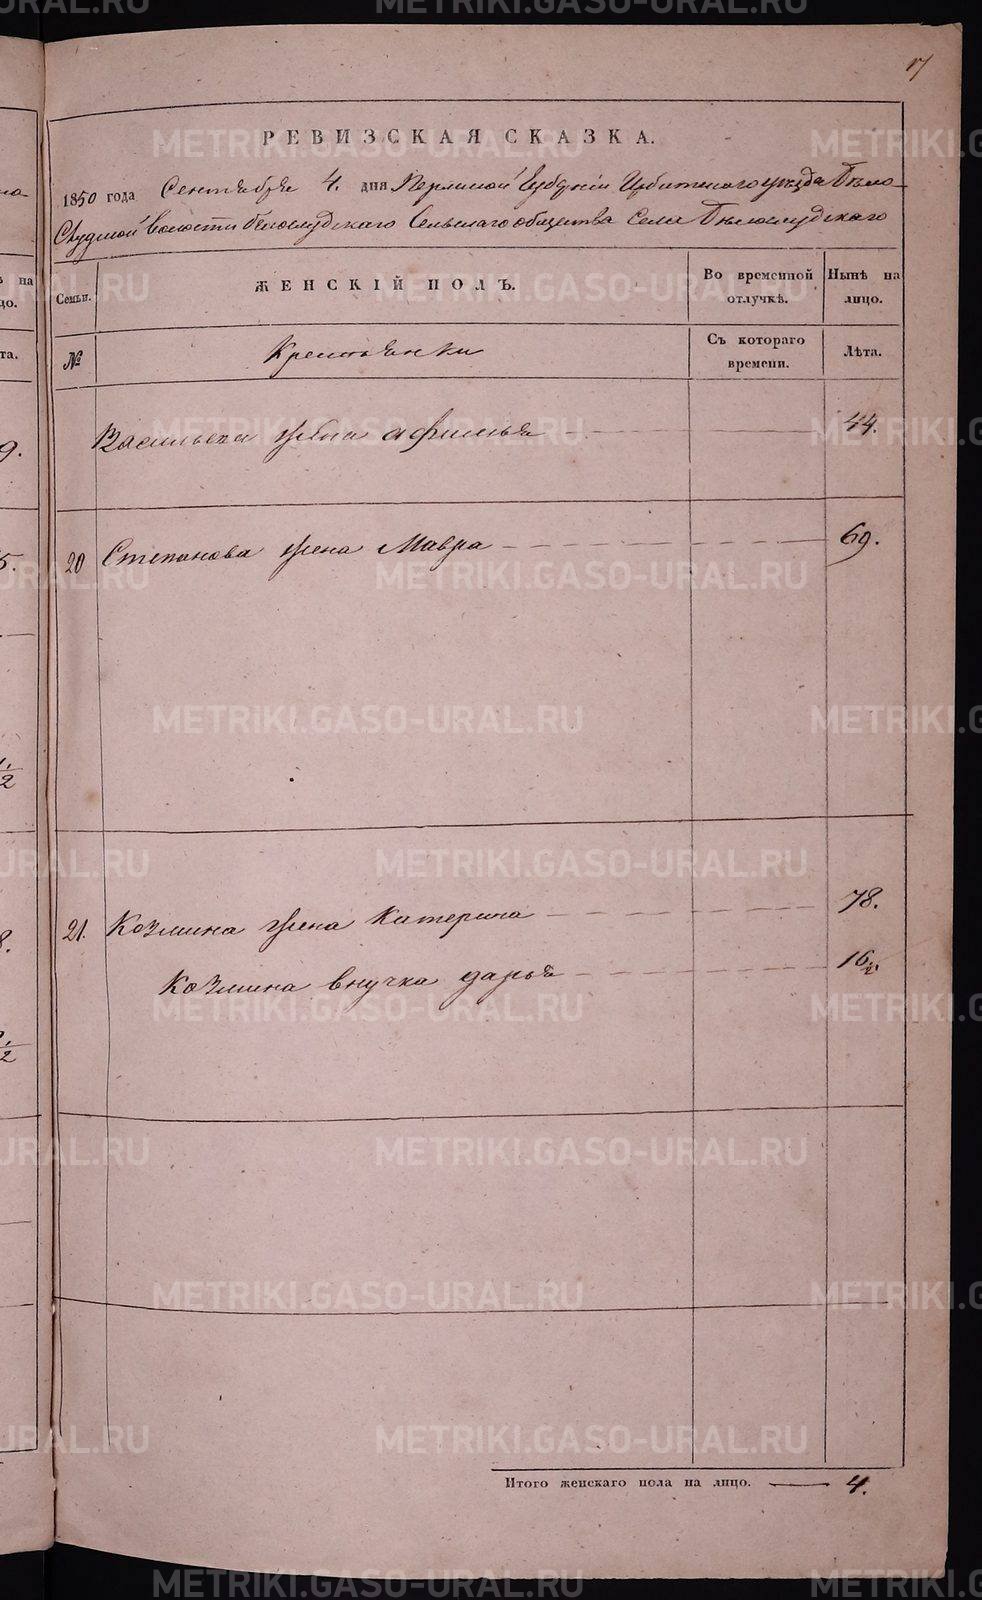 17
РЕВИЗСКАЯ СКАЗКА.
1850 года Сентября 4. дня Пермской Губернии Ирбитского уезда Бѣло-
Слудской волости Белослудского Сельского общества Села Бѣлослудского
Семьи. ЖЕНСКІЙ ПОЛЪ. Во временной отлучкѣ. Нынѣ на лицо.
№ Крестьянки Съ котораго времени. Лѣта.
Васильева жена Афимья 44.
20 Степанова жена Мавра 69.
21. Козмина жена Катерина 78.
Козмина внучка дарья 16 1/2.
Итого женскаго пола на лицо. 4.
METRIKI.GASO-URAL.RU